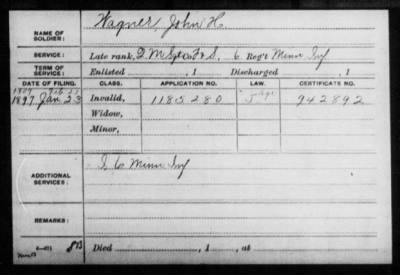 NAME OF SOLDIER: Wagner, John H.
SERVICE: Late rank, Q M Sgt Co F & S, 6 Reg't Minn Inf
TERM OF SERVICE: Enlisted , 1 Discharged , 1
DATE OF FILING. CLASS. APPLICATION NO. LAW. CERTIFICATE NO.
1897 Jan 23 Invalid, 1185280 942892
Widow,
Minor,
ADDITIONAL SERVICES: I 6 Minn Inf
REMARKS:
Died , 1 , at